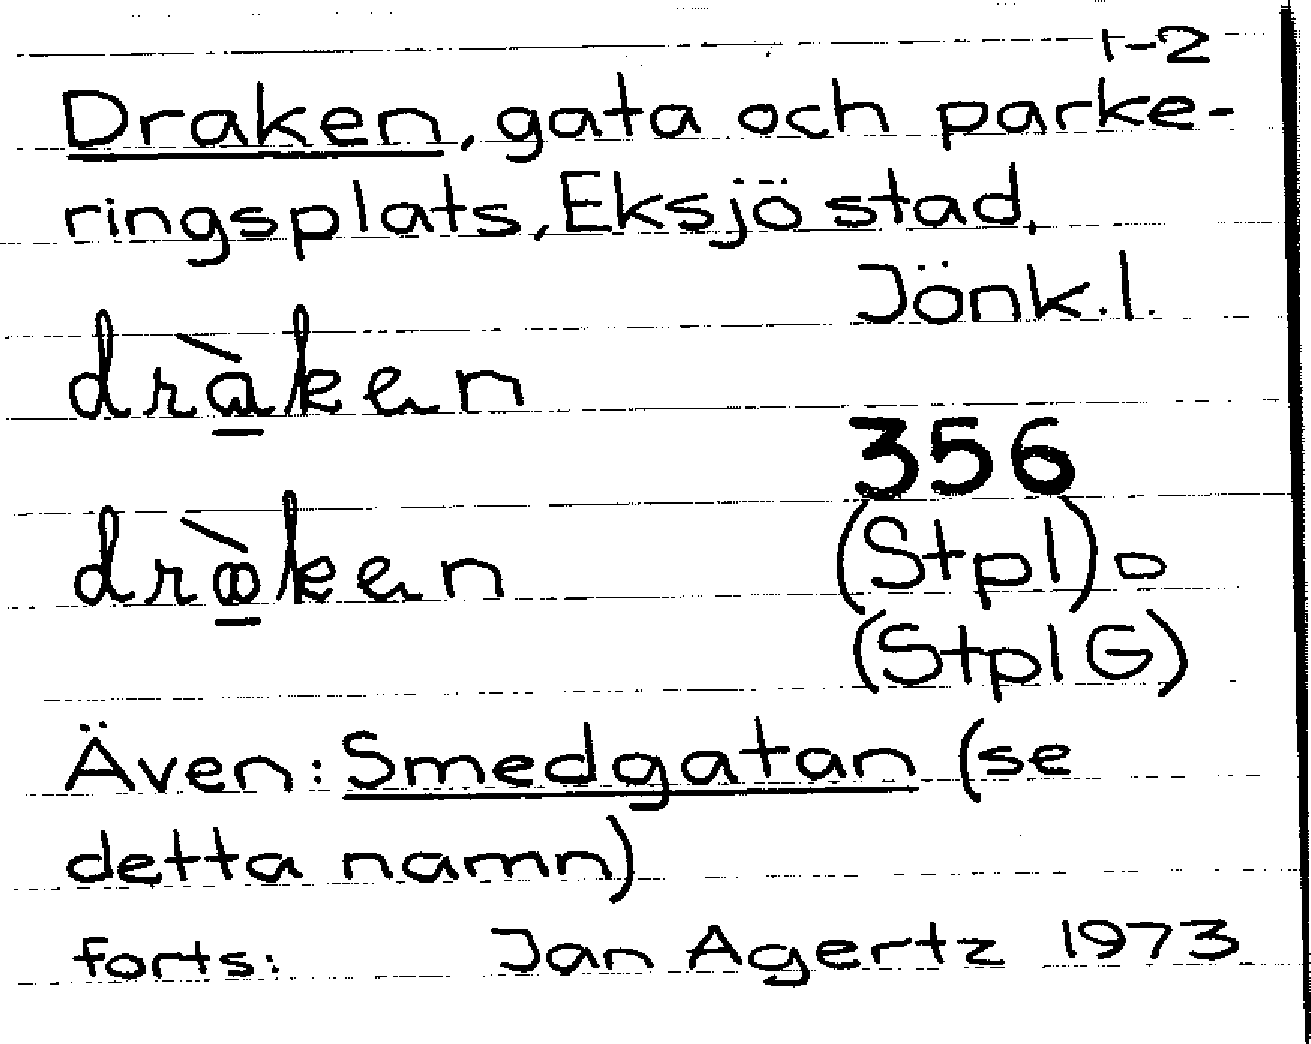 1-2
Draken, gata och parke-
ringsplats, Eksjö stad,
Jönk.l.
dràken
356
dròken
(Stpl)o
(StplG)
Även: Smedgatan (se
detta namn)
forts: Jan Agertz 1973